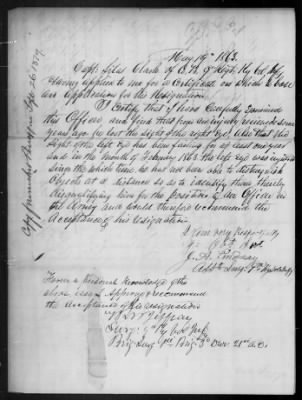 May 19th 1863.
Capt. Silas Clark of Co. A 9th Regt. Ky Vol. Inf.
Having applied to me for a Certificate on which to base
an application for his Resignation
I certify that I have Carefully Examined
this Officer and find that from an injury received some
years ago he lost the sight of the right eye, And that the
sight of the left eye has been failing for at least one year
and in the month of February 1863 the left eye was inflamed
since the whole time, he has not been able to distinguish
objects at a distance so as to identify them thereby
disqualifying him for the position of an Officer in
the Army and would therefore recommend the
Acceptance of his Resignation
Very Respectfully
Your Obt. Svt.
J. A.
Asst. Surg. 9th Ky Vol. Inf.
From a Personal Knowledge of the
above case I approve & recommend
the acceptance of his resignation
Surg. 9th Ky Vol. Infty
Brig Surg 1st Brig 3d Divn 21st A.C.